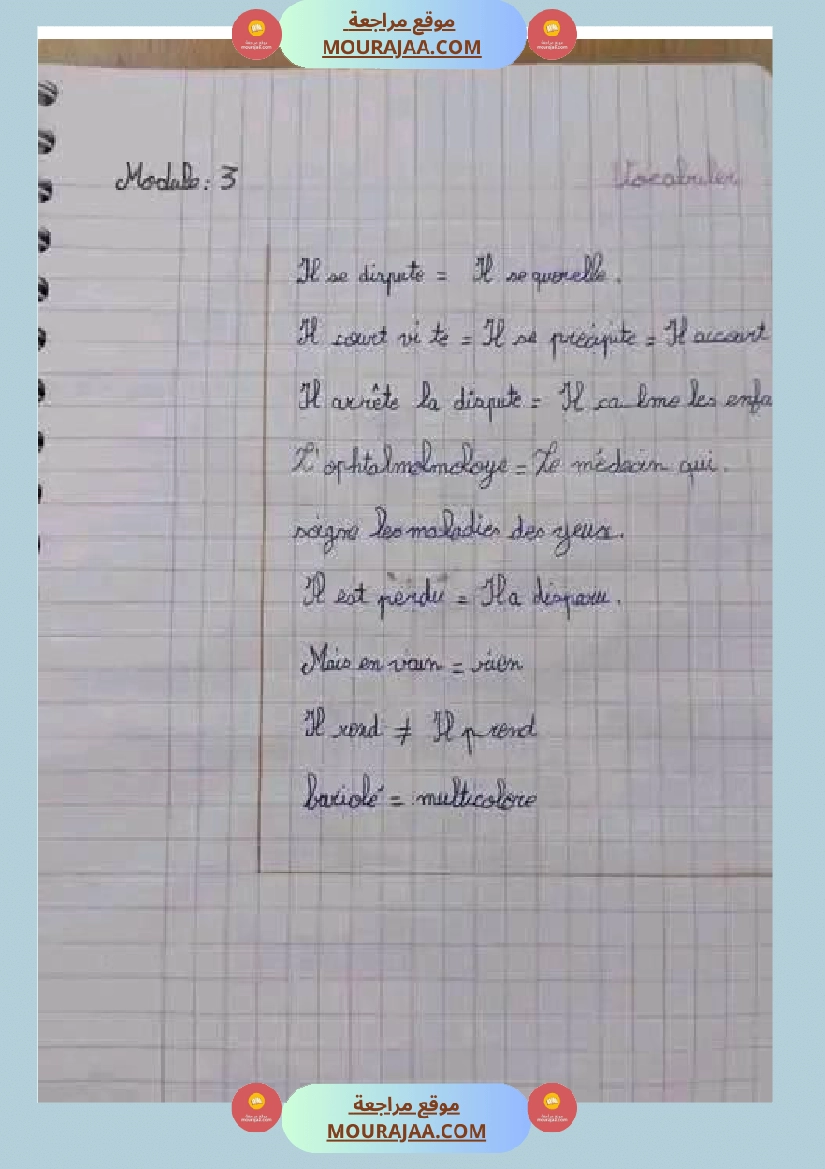 موقع مراجعة
MOURAJAA.COM
Module: 3
Vocabuler
Il se dispute = Il se querelle.
Il court vi te = Il se précipite = Il accourt
Il arrête la dispute = Il ca lme les enfa
L'ophtalmolmoloye = Le médecin qui.
soigne les maladies des yeux.
Il est perdu = Il a disparu.
Mais en vain = rien
Il rend ≠ Il prend
bariolé = multicolore
موقع مراجعة
MOURAJAA.COM